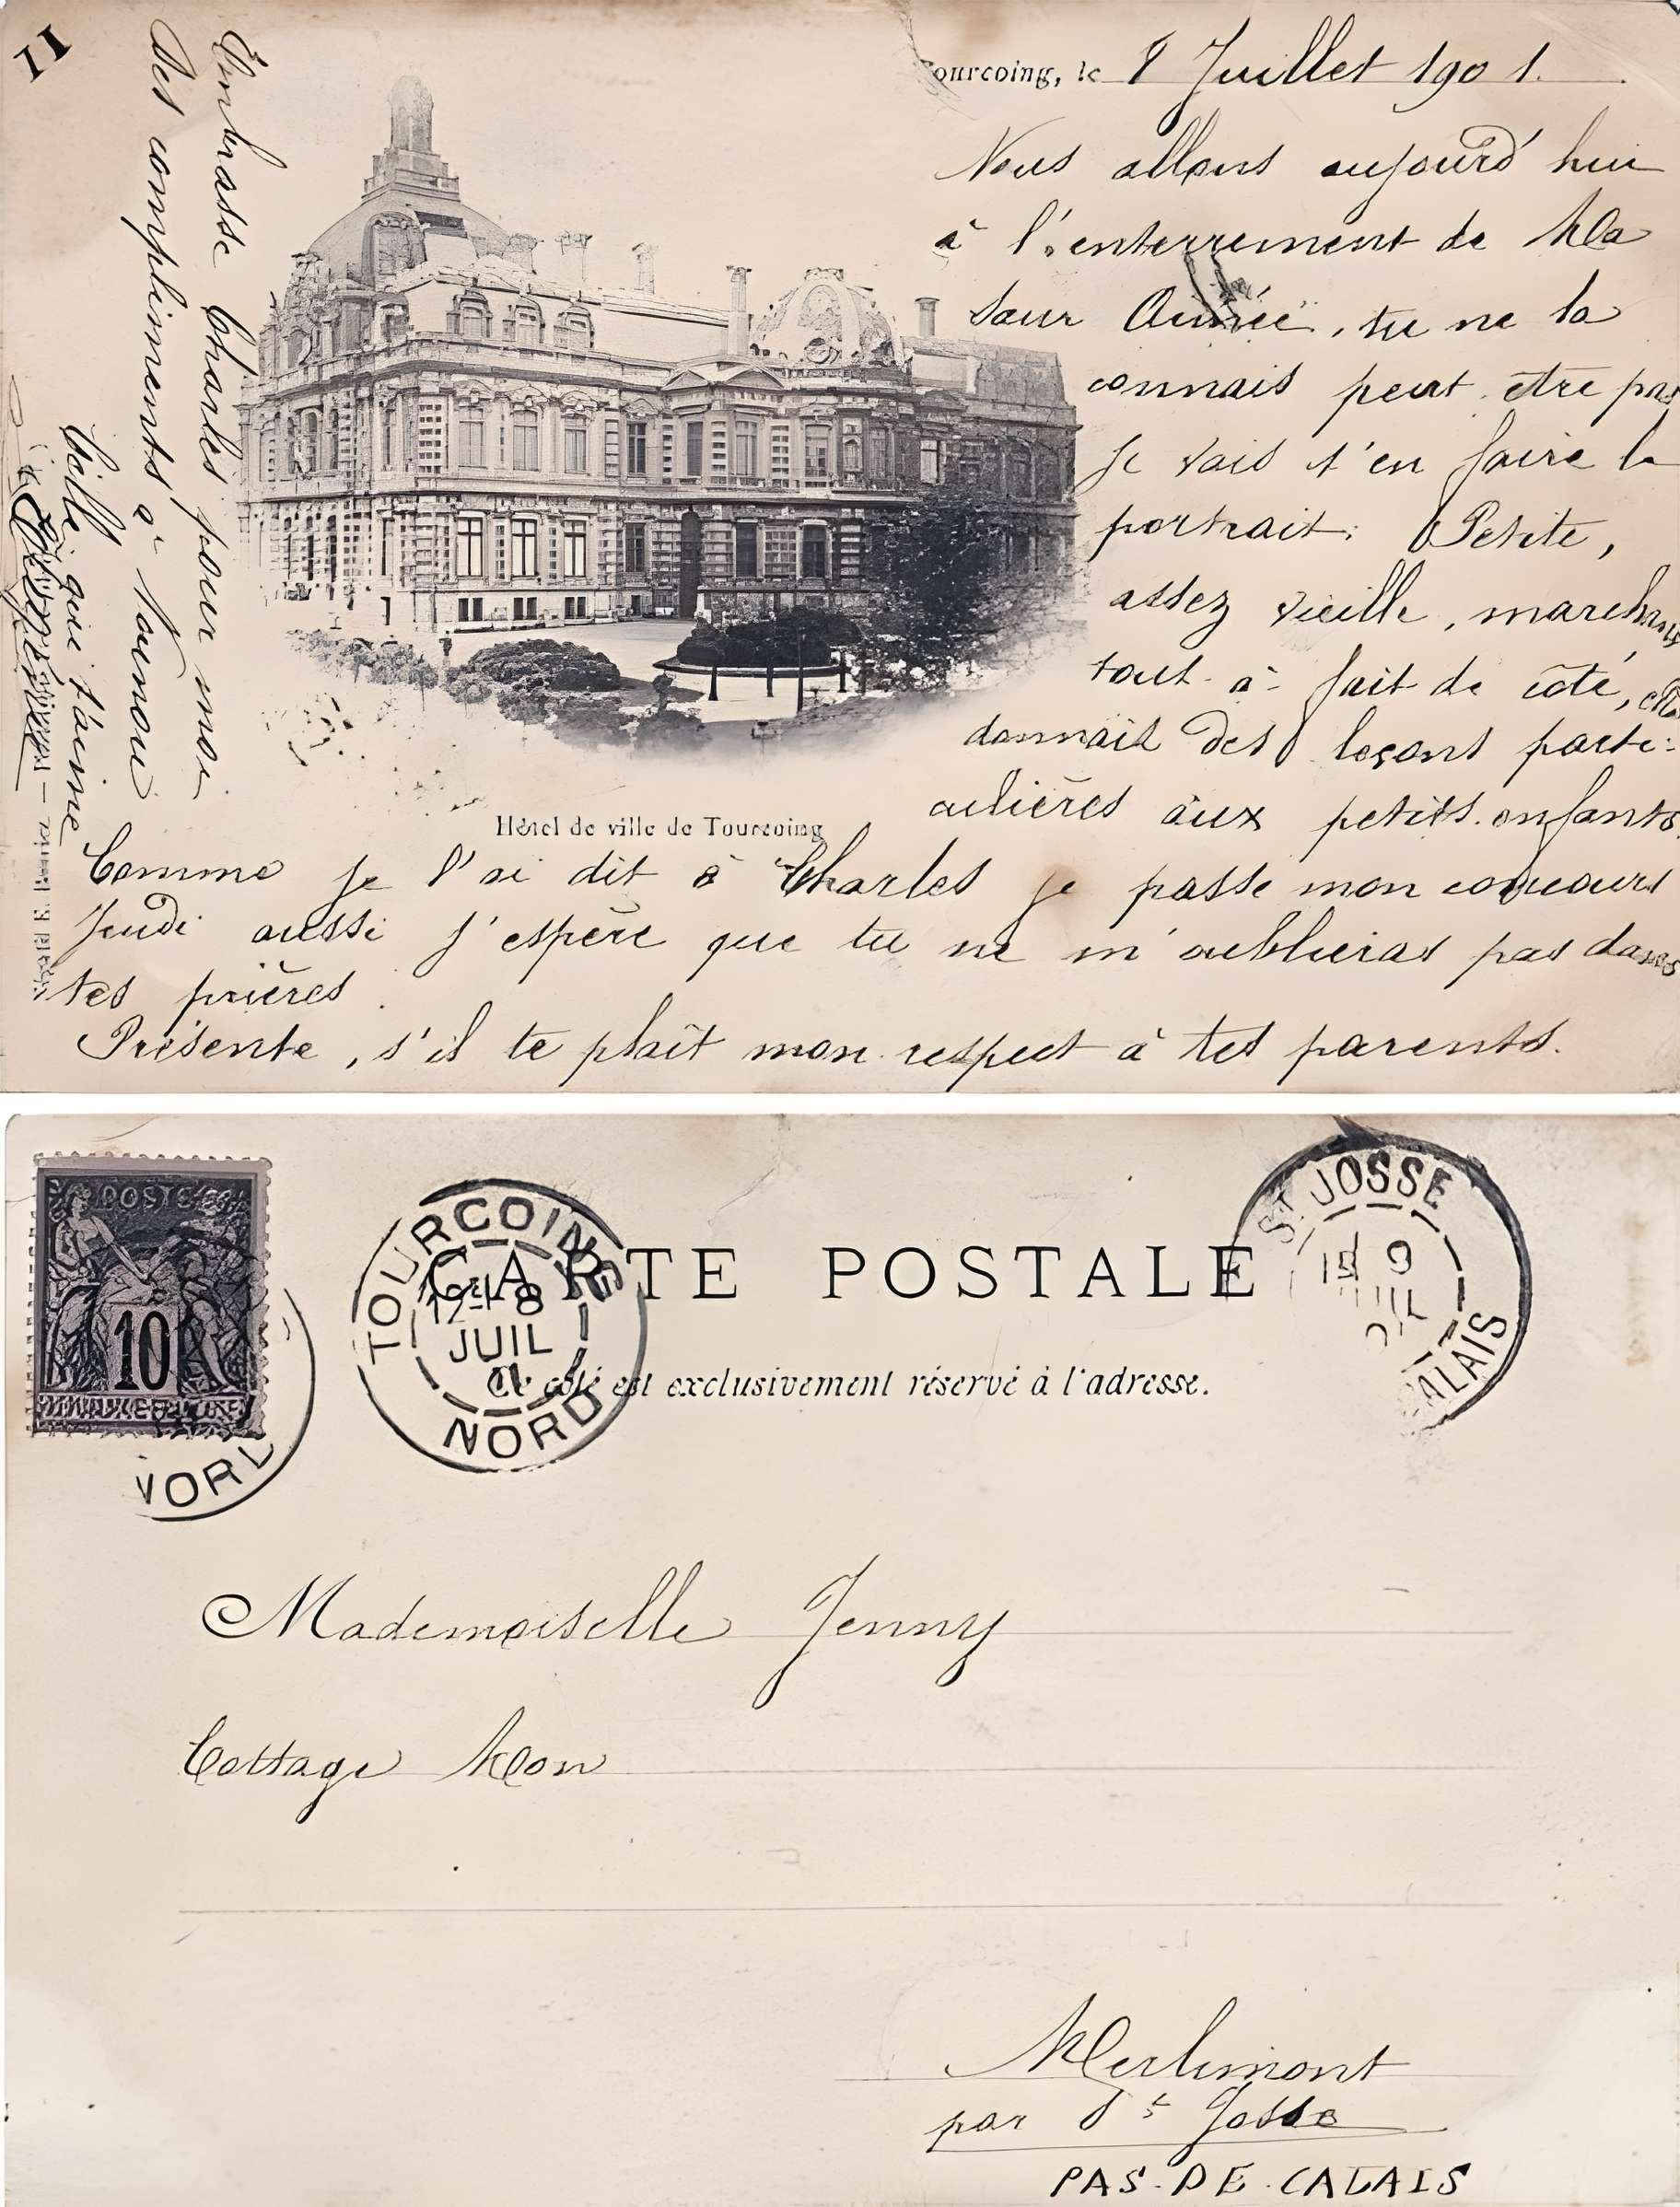 11
Tourcoing, le 8 Juillet 1901.
Nous allons aujourd'hui
à l'enterrement de Ma
Sœur Aimée, tu ne la
connais peut être pas
Je vais t'en faire le
portrait: Petite,
assez vieille, marchant
tout à fait de côté, elle
donnait des leçons parti-
culières aux petits enfants.
Comme je l'ai dit à Charles je passe mon concours
Jeudi aussi j'espère que tu ne m'oublieras pas dans
tes prières.
Présente, s'il te plaît mon respect à tes parents.
Embrasse Charles pour moi
Des complimens à Nounou
Taille qui t'aime
Hôtel de ville de Tourcoing
CARTE POSTALE
Ce côté est exclusivement réservé à l'adresse.
POSTES
10
NORD
TOURCOING
8
JUIL
01
NORD
ST JOSSE
CALAIS
Mademoiselle Jenny
Cottage Mon
Merlimont
par St Josse
PAS-DE-CALAIS